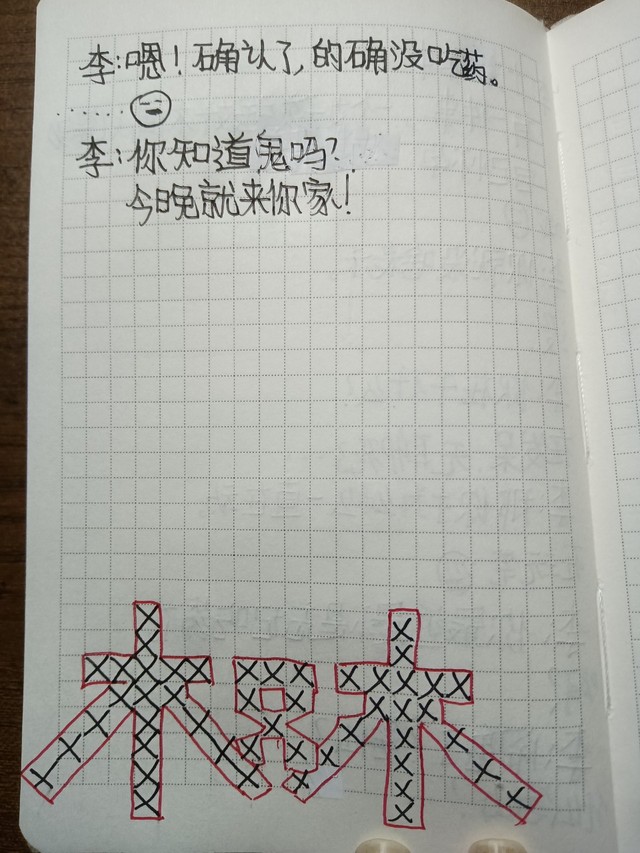 李:嗯!确认了,的确没吃药。
......
李:你知道鬼吗?
今晚就来你家!